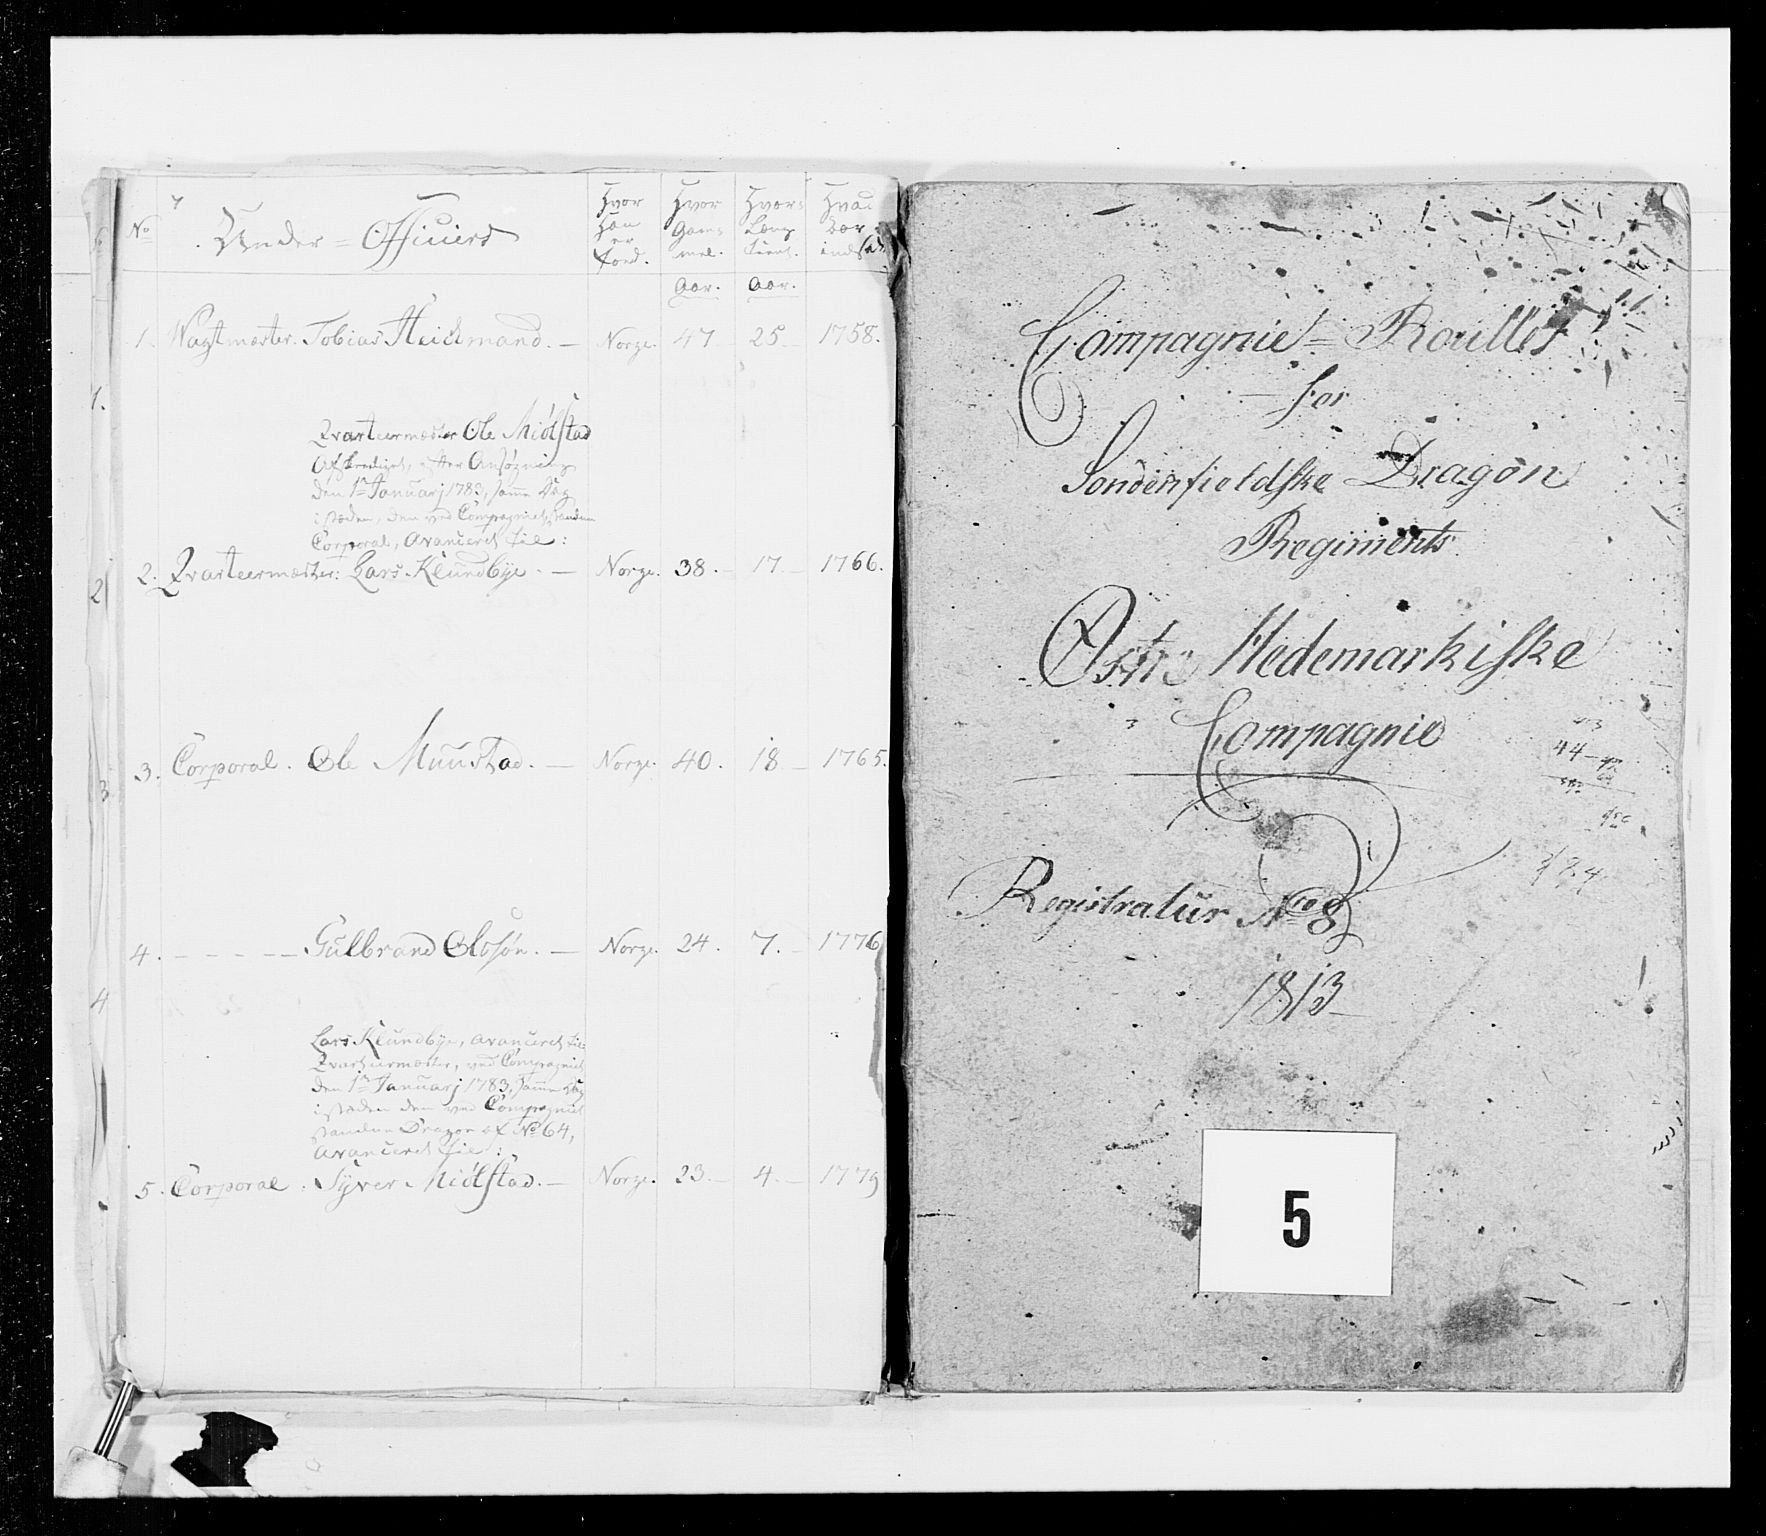 No
Under-Officiers
Hvor Han er Fød.
Hvor Gammel.
Hvor Læng tient.
Aar.
Aar.
1. Wagtmæster. Tobias Heidmand. — Norge. 47 25 1758.
1.
Qvarteermæster Ole Miølstad
Afskediget, efter Ansøgning
den 1te Januarj 1783, samme Dag
istæden, den ved Compagniet standen
Corporal, Avanceret til:
2. Qvarteermæster: Lars Klundbye. — Norge. 38. 17. 1766.
2
3. Corporal. Ole Muustad. — Norge. 40. 18 1765.
3
4. - - - - - Gulbrand Olssøn. — Norge. 24. 7. 1776
4
Lars Klundbye, avanceret til
Qvarteermæster, ved Compagniet
den 1te Januarj 1783, samme Dag
istæden den ved Compagniet
standne Dragon af No 64,
avanceret til:
5. Corporal. Syver Miølstad. — Norge. 23. 4. 1779
Compagnie-Roulles
for
Søndenfieldske Dragon
Regiments
Østre Hedemarkiske
Compagnie
44
Registratur No 8
1813
5